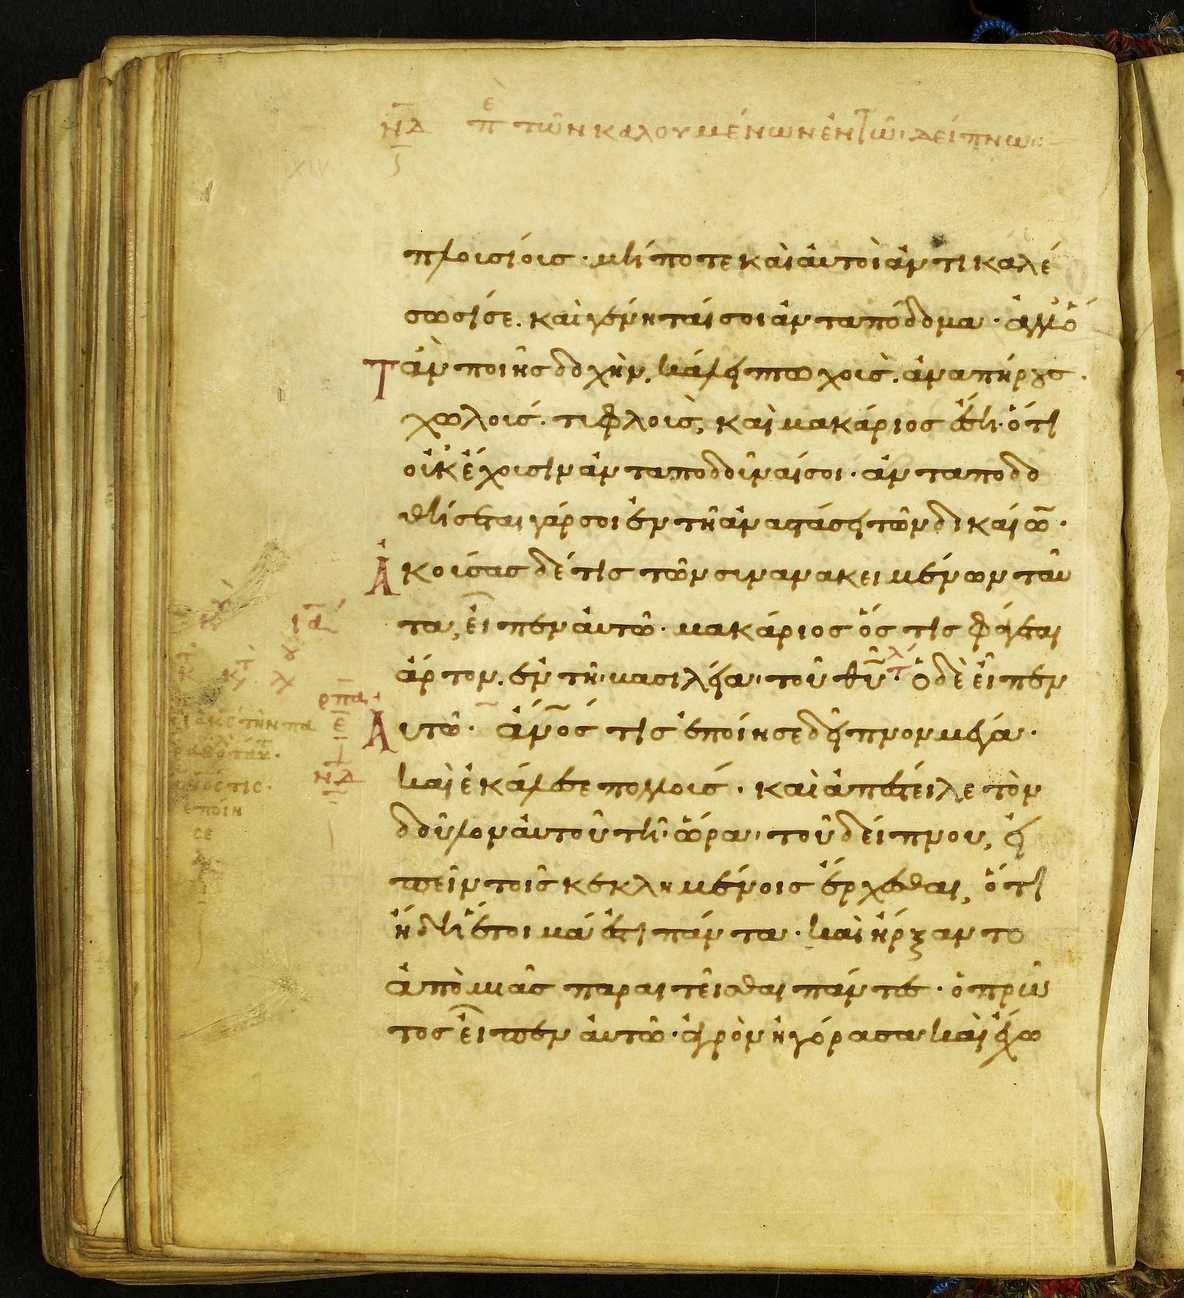 ν̅δ̅ πὲ τῶν καλουμένων ἐν τῶ δείπνω:
πλουσίους· μήποτε καὶ αὐτοὶ ἀντικαλέ
σωσίσε. καὶ γένηταί σοι ἀνταπόδομα· ἀλλ' ὅ
Τὰν ποιῆς δοχὴν, κάλει πτωχοὺς. ἀναπήρους.
χωλούς. τυφλοὺς, καὶ μακάριος ἔση· ὅτι
οὐκ ἔχουσιν ἀνταποδοῦναί σοι· ἀνταποδο
θήσεται γάρ σοι ἐν τῆ ἀναστάσει τῶν δικαίω̅·
Ἀκούσας δέ τις τῶν συνανακειμένων ταῦ
τα, εἶπεν αὐτῶ· μακάριος ὅστις φάγεται
ἄρτον. ἐν τῆ βασιλεία τοῦ θ̅υ̅· Ὁ δὲ εἶπεν
Αὐτῶ· ἄν̅ο̅ς τὶς ἐποίησε δεῖπνον μέγα·
καὶ ἐκάλεσε πολλούς· καὶ ἀπέστειλε τὸν
δοῦλον αὐτοῦ τῆ ὥρα τοῦ δείπνου, εἰ
πεῖν τοῖς κεκλημένοις ἔρχεσθαι, ὅτι
ἤδη ἕτοιμά ἐστι πάντα· καὶ ἤρξαντο
ἀπὸ μιᾶς παραιτεῖσθαι πάντες· ὁ πρῶ
τος εἶπεν αὐτῶ· ἀγρὸν ἠγόρασα καὶ ἔχω
ρ̅π̅α̅
ε̅
ν̅δ̅
ἐποίη
σε